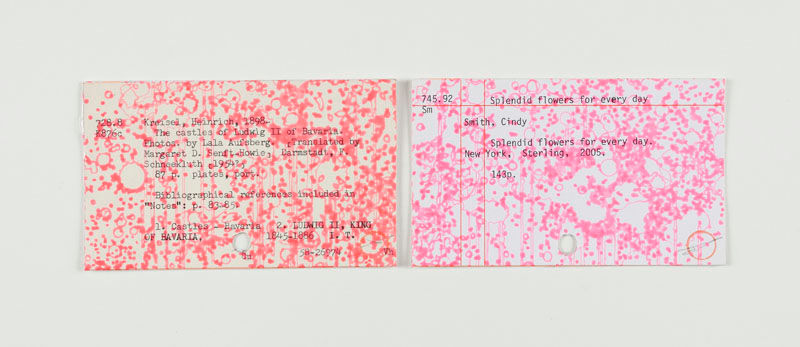 728.8 Kreisel, Heinrich, 1898-
K876c The castles of Ludwig II of Bavaria.
Photos. by Lala Aufsberg. Translated by
Margaret D. Senft-Howie, Darmstadt, F.
Schneekluth 1954
87 p. plates, port.
Bibliographical references included in
"Notes": p. 83-85.
1. Castles - Bavaria 2. LUDWIG II, KING
OF BAVARIA, 1845-1886 I. T.
745.92 Splendid flowers for every day
Sm
Smith, Cindy
Splendid flowers for every day.
New York, Sterling, 2005.
143p.